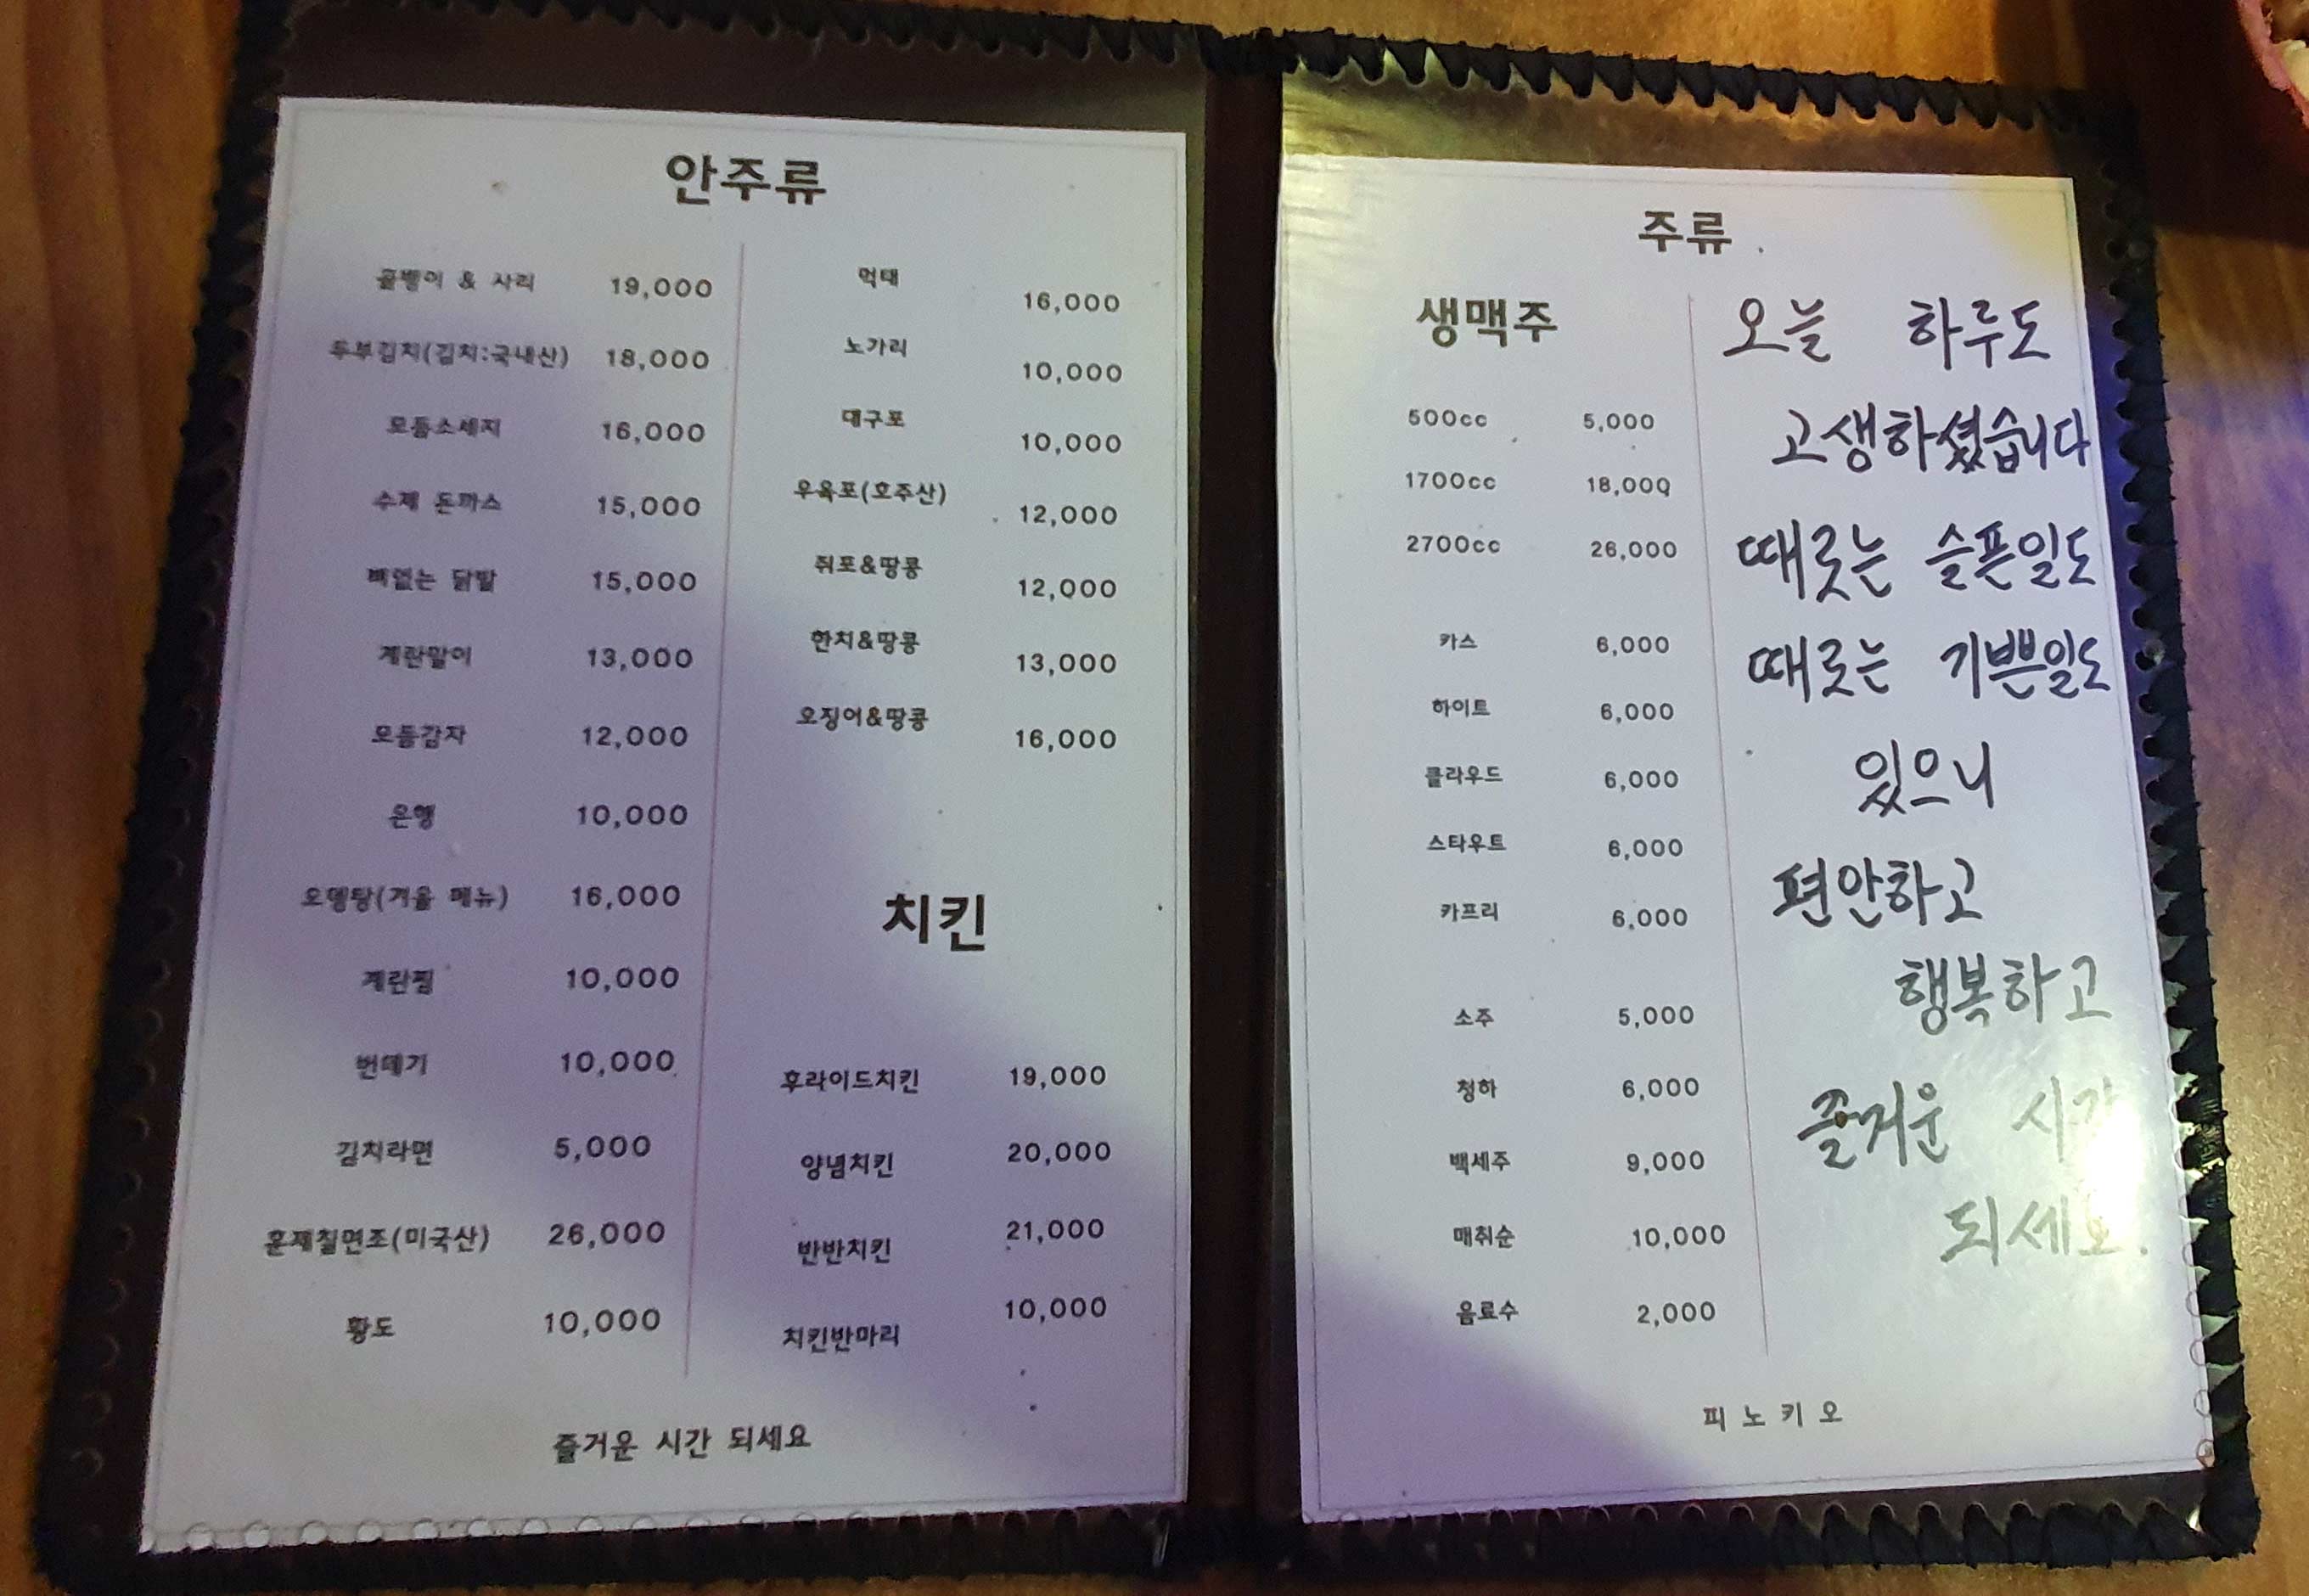 안주류
골뱅이 & 사리 19,000
두부김치(김치:국내산) 18,000
모듬소세지 16,000
수제 돈까스 15,000
뼈없는 닭발 15,000
계란말이 13,000
모듬감자 12,000
은행 10,000
오뎅탕(겨울 메뉴) 16,000
계란찜 10,000
번데기 10,000
김치라면 5,000
훈제칠면조(미국산) 26,000
황도 10,000
먹태 16,000
노가리 10,000
대구포 10,000
우육포(호주산) 12,000
쥐포&땅콩 12,000
한치&땅콩 13,000
오징어&땅콩 16,000
치킨
후라이드치킨 19,000
양념치킨 20,000
반반치킨 21,000
치킨반마리 10,000
즐거운 시간 되세요
주류
생맥주
500cc 5,000
1700cc 18,000
2700cc 26,000
카스 6,000
하이트 6,000
클라우드 6,000
스타우트 6,000
카프리 6,000
소주 5,000
청하 6,000
백세주 9,000
매취순 10,000
음료수 2,000
오늘 하루도
고생하셨습니다
때로는 슬픈일도
때로는 기쁜일도
있으니
편안하고
행복하고
즐거운 시간
되세요.
피노키오